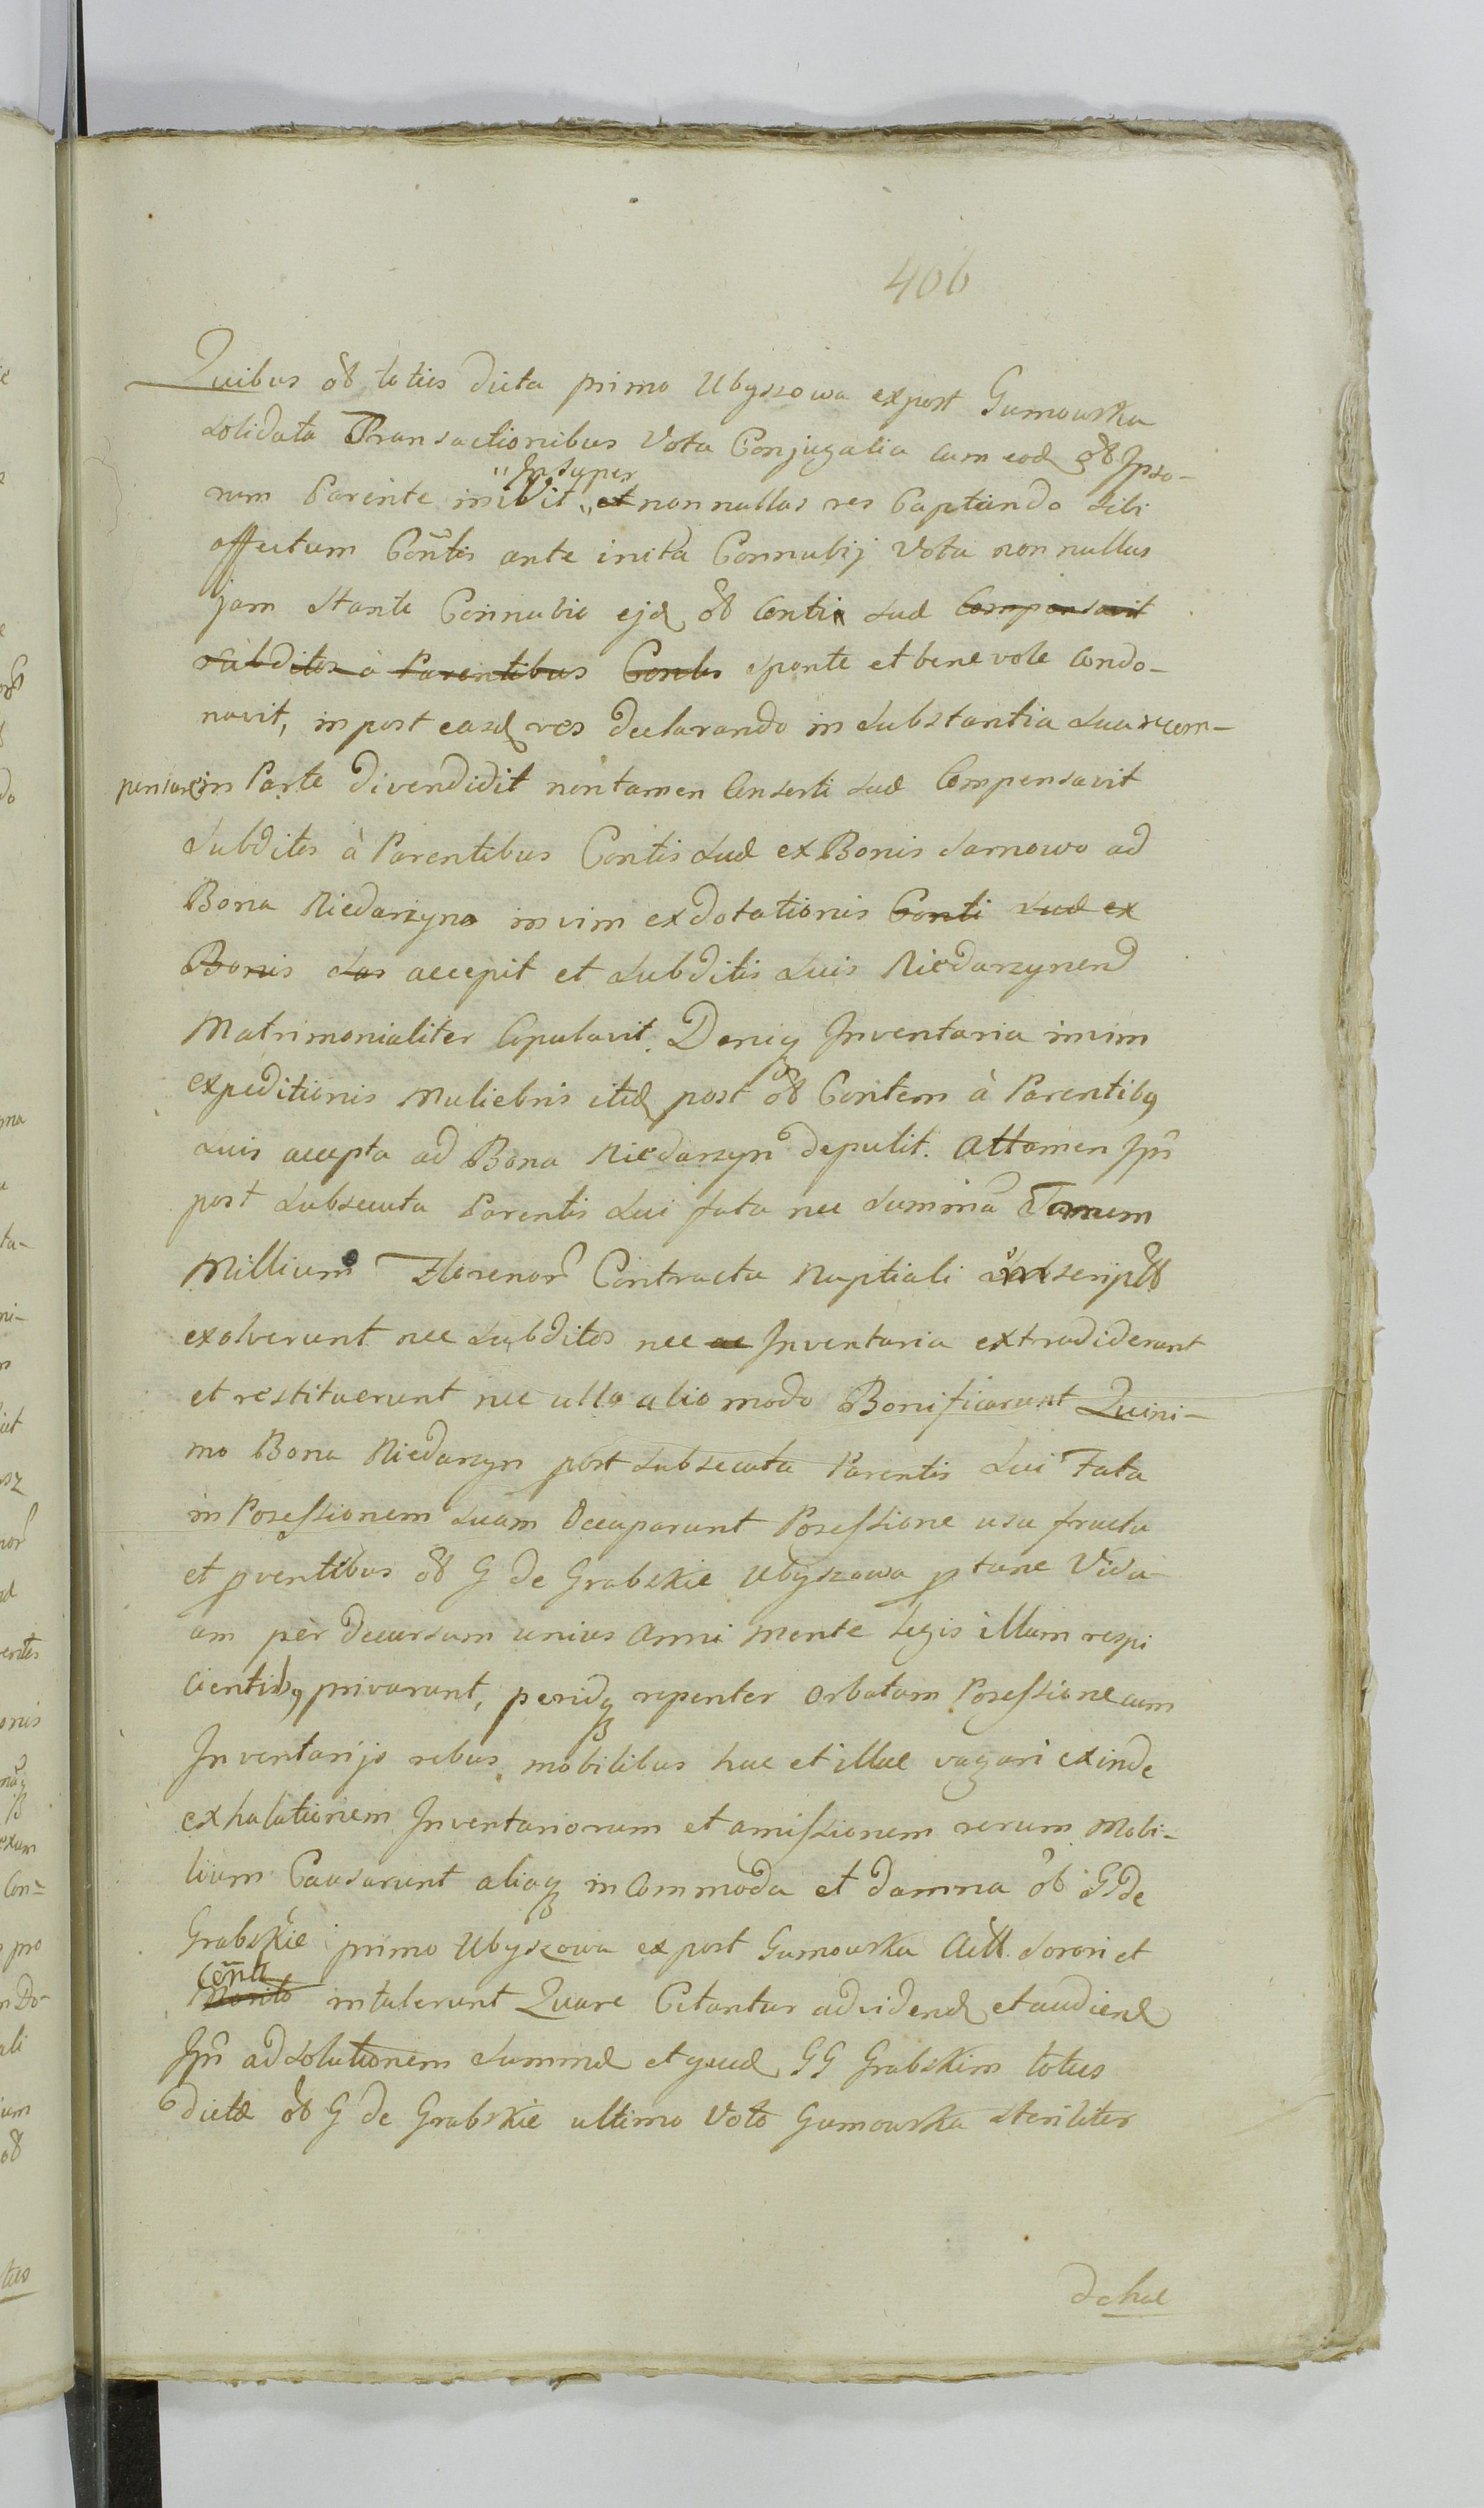 406
Quibus ob toties dicta primo Ubyszowa expost Gumowska
solidata Transactionibus Vota Conjugalia cum eod ob Ipso-
rum Parente inivit „Insuper et nonnullas res Captando sibi
affectum Contis ante inita Connubij Vota nonnullas
jam stante Connubio ejd ob Conti suae Compensavit
subditos à Parentibus Contis sponte et benevole condo-
navit, in post easd res declarando in substantia sua recom-
pensare in Parte divendidit non tamen Conserti suae Compensavit
Subditos à Parentibus Contis suae ex Bonis Sarnowo ad
Bona Niedarzyno in vim exdotationis Conti suae ex
Bonis suas accepit et subditis suis Niedarzynen
Matrimonialiter Copulavit. Deniq Inventaria in vim
expeditionis Muliebris itid post ob Contem à Parentibq
suis accepta ad Bona Niedarzyn depulit. Attamen Ipi
post subsecuta Parentis sui fata nec summa Trium
Millium Florenor Contractu Nuptiali inscript
exolverunt nec subditos nec ac Inventaria extradiderunt
et restituerunt nec ullo alio modo Bonificarunt Quini-
mo Bona Niedarzyn post subsecuta Parentis sui Fata
in Possessionem suam Occuparunt Possessione usu fructu
et pventibus ob G de Grabskie Ubyszowa p tunc Vidu-
am per decursum unius Anni mente Legis illam respi
cientibq privarunt, repenter orbatam Possessione cum
Inventarijs rebusq mobilibus hac et illac vagari exinde
exhalationem Inventariorum et amissionem rerum Mobi-
lium Causarunt aliaq incommoda et damna ob G de
Grabskie primo Ubyszowa expost Gumowska Act. sorori et
Conti Marito intulerunt Quare Citantur ad vidend et audiend
Ipi ad solutionem summae GG Grabskim toties
dictae ob G de Grabskie ultimo Voto Gumowska steriliter
de hac